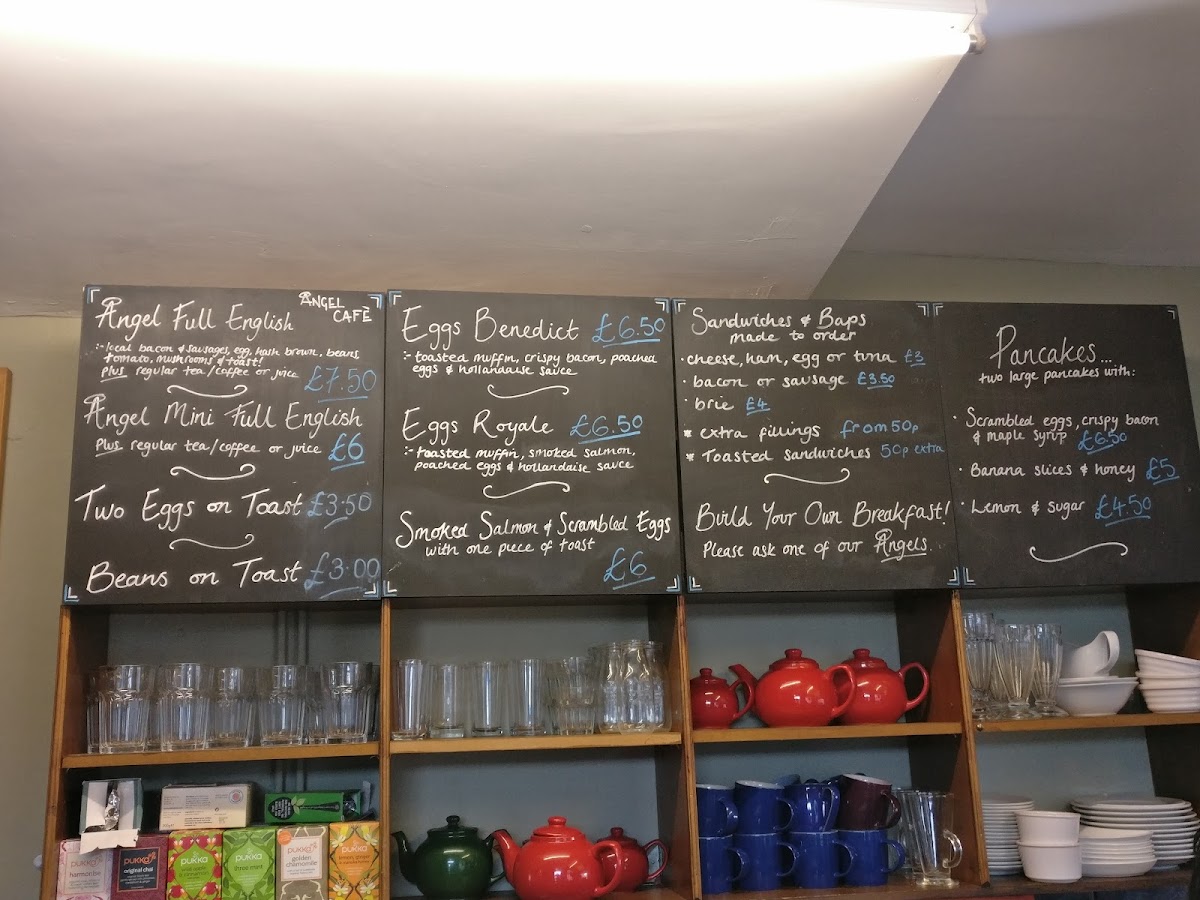 Angel Full English
ANGEL
CAFÉ
:- local bacon & sausages, egg, hash brown, beans,
tomato, mushrooms & toast!
Plus regular tea/coffee or juice £7.50
Angel Mini Full English
Plus regular tea/coffee or juice £6
Two Eggs on Toast £3·50
Beans on Toast £3·00
Eggs Benedict £6.50
:- toasted muffin, crispy bacon, poached
eggs & hollandaise sauce
Eggs Royale £6.50
:- toasted muffin, smoked salmon,
poached eggs & hollandaise sauce
Smoked Salmon & Scrambled Eggs
with one piece of toast
£6
Sandwiches & Baps
made to order
· cheese, ham, egg or tuna £3
· bacon or sausage £3.50
· brie £4
* extra fillings from 50p
* Toasted sandwiches 50p extra
Build Your Own Breakfast!
Please ask one of our Angels.
Pancakes...
two large pancakes with:
· Scrambled eggs, crispy bacon
& maple syrup £6.50
· Banana slices & honey £5
· Lemon & sugar £4.50
pukka
original chai
pukka
pukka
three mint
pukka
golden
chamomile
pukka